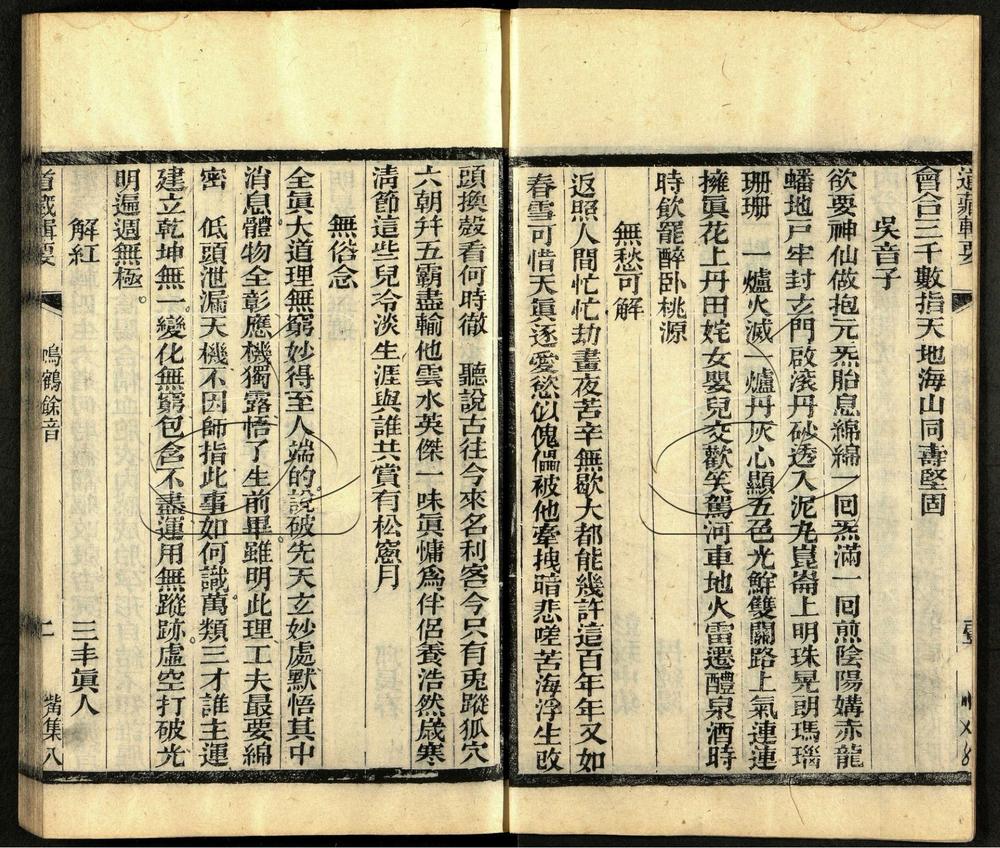 道藏輯要
會合三千數指天地海山同壽堅固
吳音子
欲要神仙做抱元炁胎息綿綿一囘炁滿一囘煎陰陽媾赤龍
蟠地戸牢封玄門啟滚丹砂透入泥丸崑崙上明珠晃朗瑪瑙
珊珊 一爐火滅一爐丹灰心顯五色光鮮雙關路上氣連連
擁眞花上丹田姹女嬰兒交歡笑駕河車地火雷遷醴泉酒時
時飲罷醉卧桃源
無愁可解
返照人間忙忙劫晝夜苦辛無歇大都能幾許這百年年又如
春雪可惜天眞逐愛慾似傀儡被他牽拽暗悲嗟苦海浮生改
頭換殼看何時徹 聽說古往今來名利客今只有兎蹤狐穴
六朝幷五霸盡輸他雲水英傑一味眞慵爲伴侶養浩然歲寒
淸節這些兒冷淡生涯與誰共賞有松窻月
無俗念
全眞大道理無窮妙得至人端的說破先天玄妙處默悟其中
消息體物全彰應機獨露悟了生前畢雖明此理工夫最要綿
密 低頭泄漏天機不因師指此事如何識萬類三才誰主運
建立乾坤無一變化無窮包含不盡運用無蹤跡虛空打破光
明遍週無極。
解紅 三丰眞人
道藏輯要 鳴鶴餘音 二 觜集八